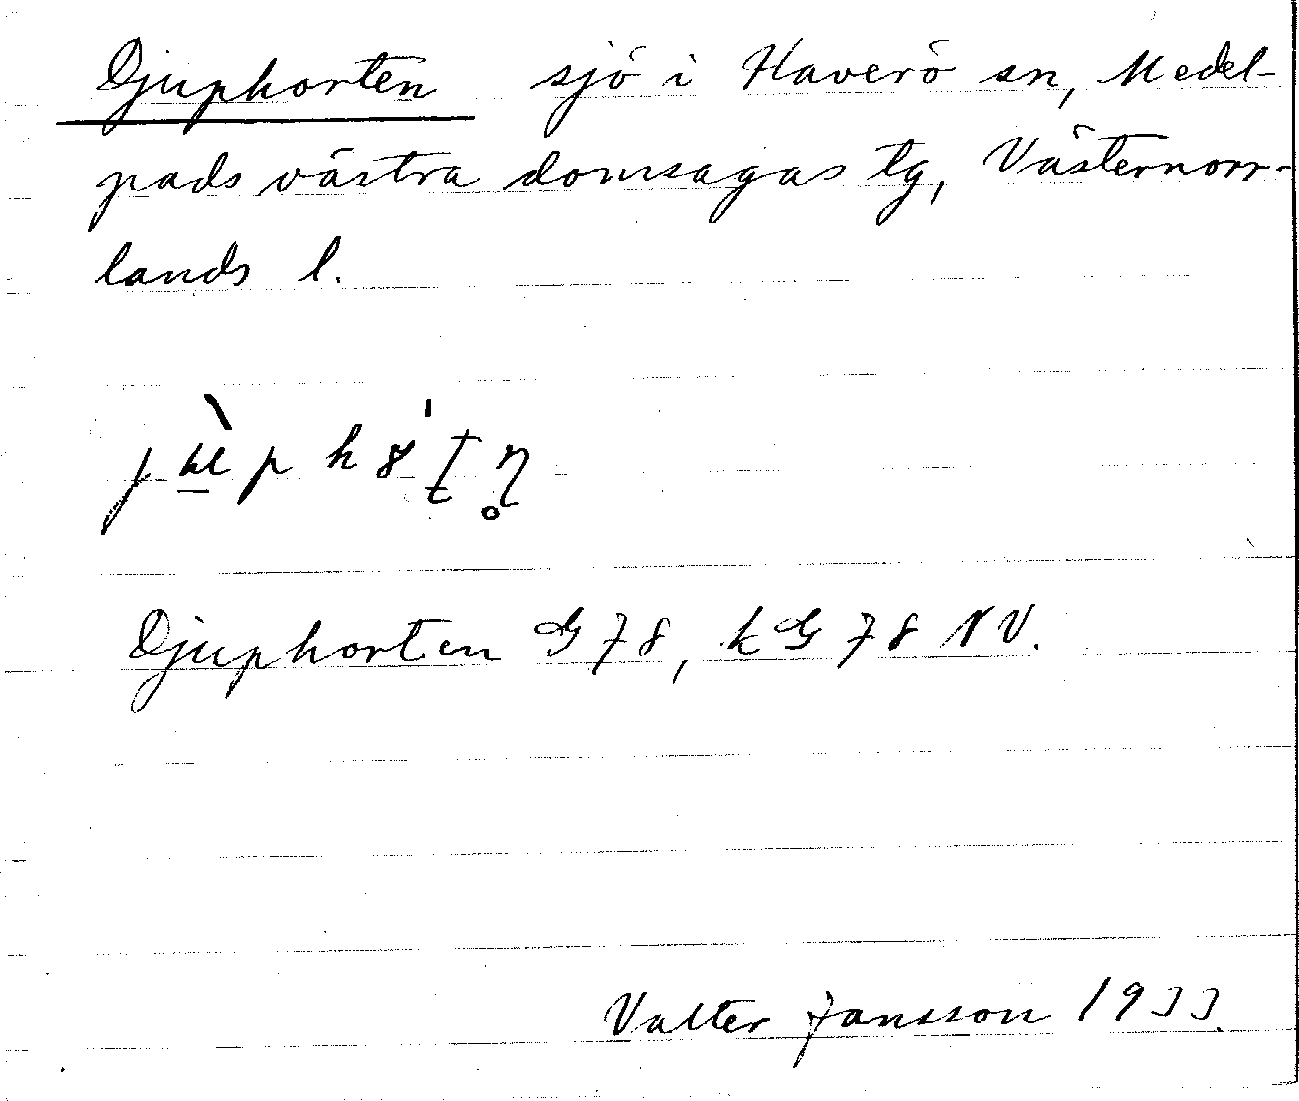 Djuphorten sjö i Haverö sn, Medel-
pads västra domsagas tg, Västernorr-
lands l.
Djuphorten G 78, kG 78 NV.
Valter Jansson 1933.